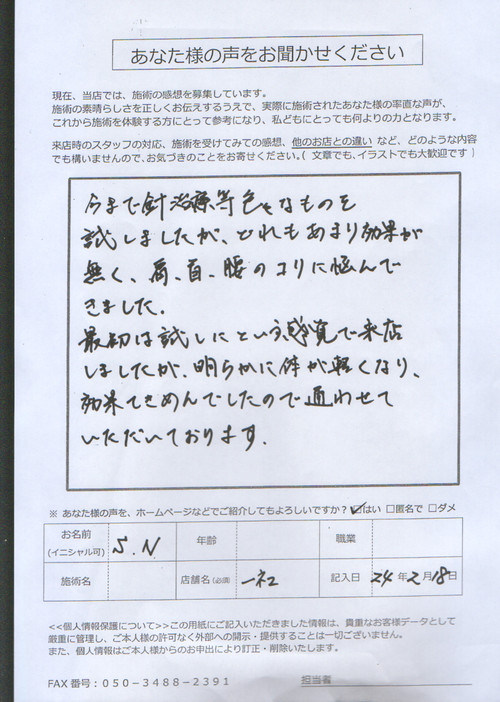 あなた様の声をお聞かせください
現在、当店では、施術の感想を募集しています。
施術の素晴らしさを正しくお伝えするうえで、実際に施術されたあなた様の率直な声が、
これから施術を体験する方にとって参考になり、私どもにとっても何よりの力となります。
来店時のスタッフの対応、施術を受けてみての感想、他のお店との違い など、どのような内容
でも構いませんので、お気づきのことをお寄せください。( 文章でも、イラストでも大歓迎です )
今まで針治療等色々なものを
試しましたが、どれもあまり効果が
無く、肩、首、腰のコリに悩んで
きました.
最初は試しにという感覚で来店
しましたが、明らかに体が軽くなり、
効果てきめんでしたので通わせて
いただいております.
※ あなた様の声を、ホームページなどでご紹介してもよろしいですか? ☑はい □匿名で □ダメ
お名前 (イニシャル可) S.N 年齢 職業
施術名 店舗名(必須) 一社 記入日 24年2月18日
<<個人情報保護について>>この用紙にご記入いただきました情報は、貴重なお客様データとして
厳重に管理し、ご本人様の許可なく外部への開示・提供することは一切ございません。
また、個人情報はご本人様からのお申出により訂正・削除いたします。
FAX 番号：050-3488-2391 担当者